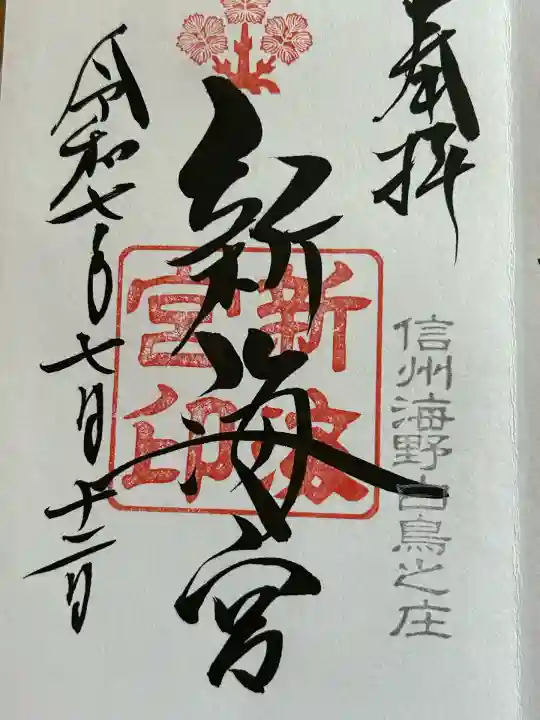 奉拝
信州海野白鳥之庄
新海宮
新波宮印
令和七年七月十二日